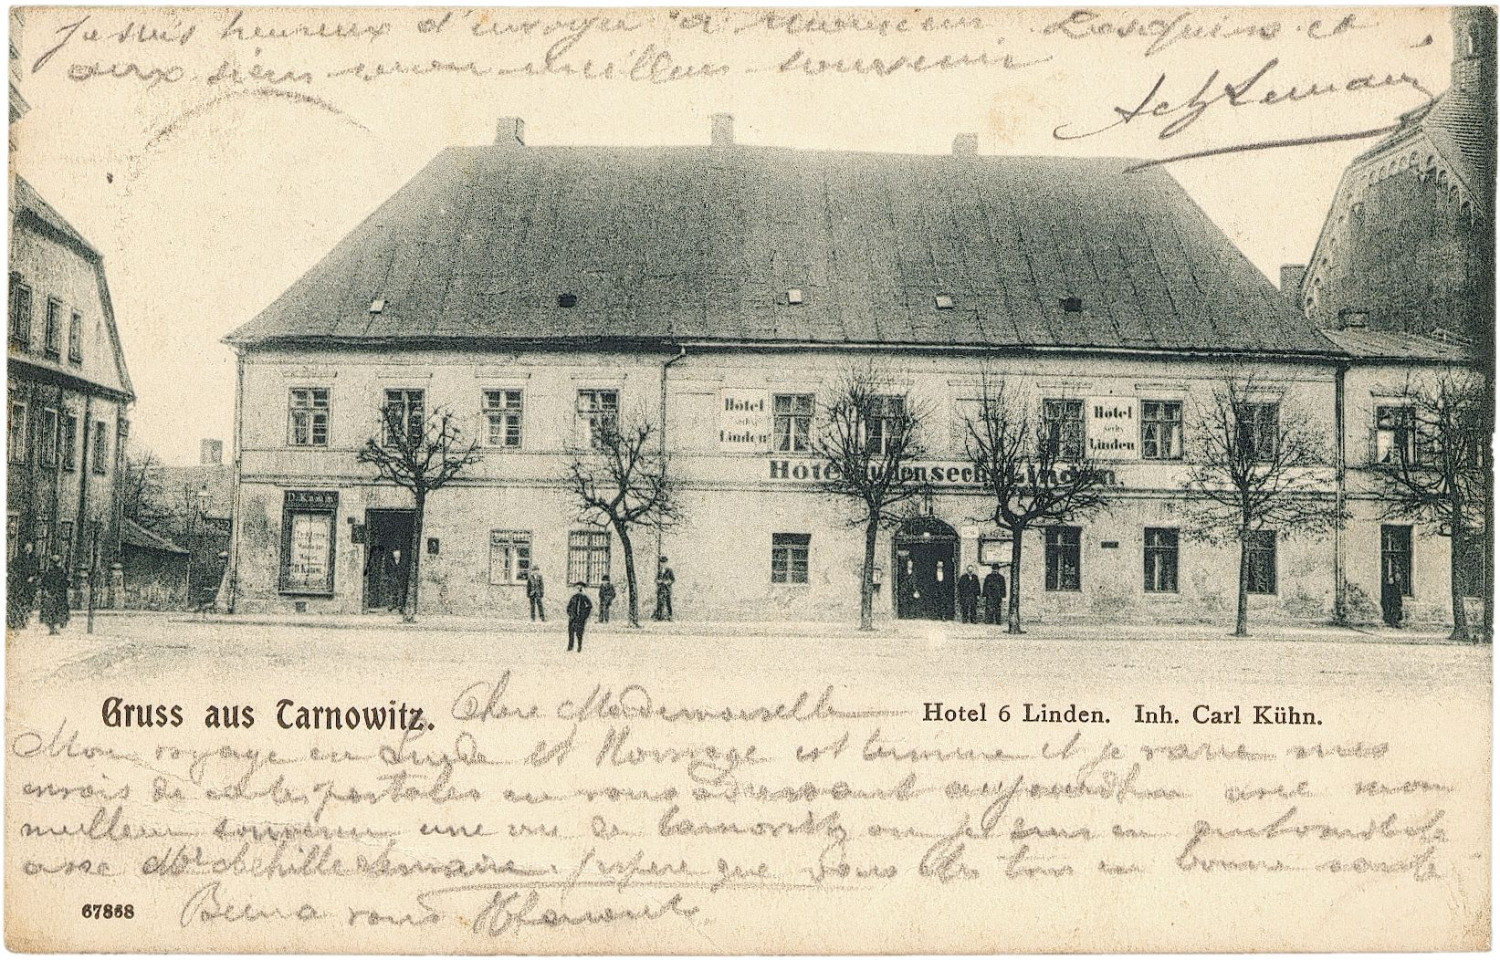 Je suis heureux d'envoyer à Monsieur et
aux siens mon meilleur souvenir
Ach Lemaire
Hôtel
sechs
Linden
Hôtel
sechs
Linden
Hotel zu den sechs Linden
Gruss aus Tarnowitz.
Chère Mademoiselle
Hotel 6 Linden. Inh. Carl Kühn.
Mon voyage en Suède et Norvège est terminé et je varie mes
envois de cartes postales en vous adressant aujourd'hui avec mon
meilleur souvenir une vue de Tarnowitz où je suis en
avec Mr Achille Lemaire. J'espère que vous êtes tous en bonne santé
67868
Bien à vous